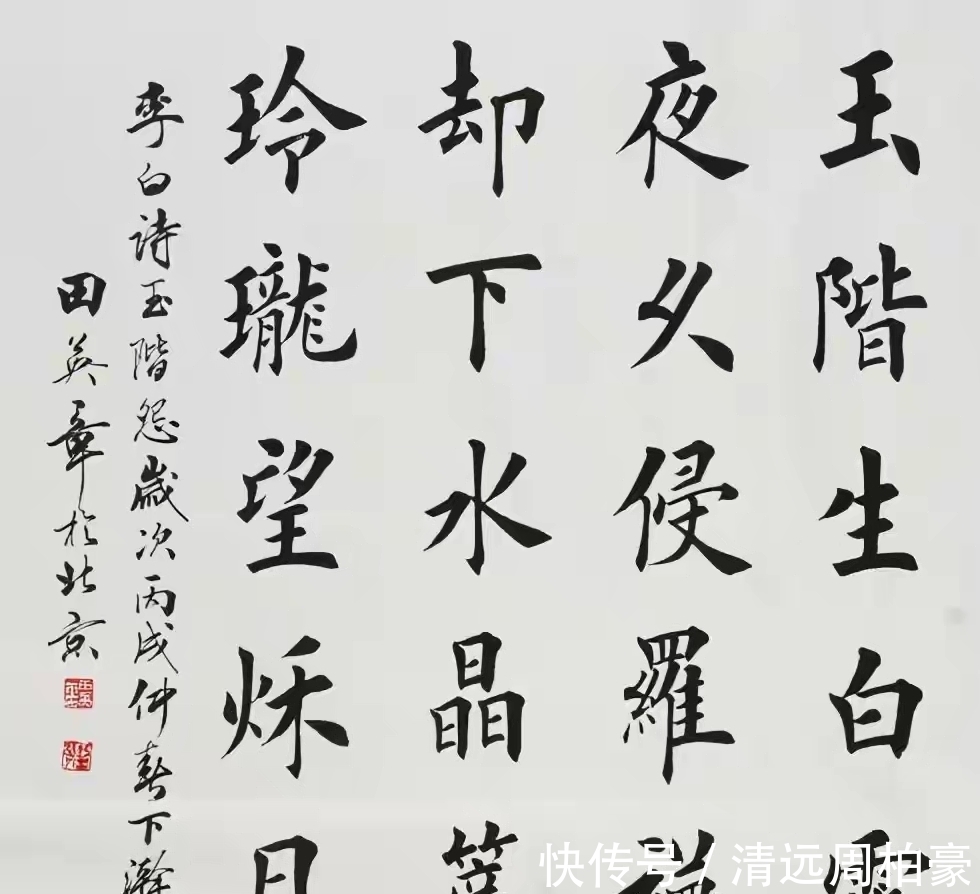 玉階生白
夜久侵羅
却下水晶
玲瓏望秌月
李白詩玉階怨歲次丙戌仲春下瀚
田英章於北京
快传号 / 清远周拍豪